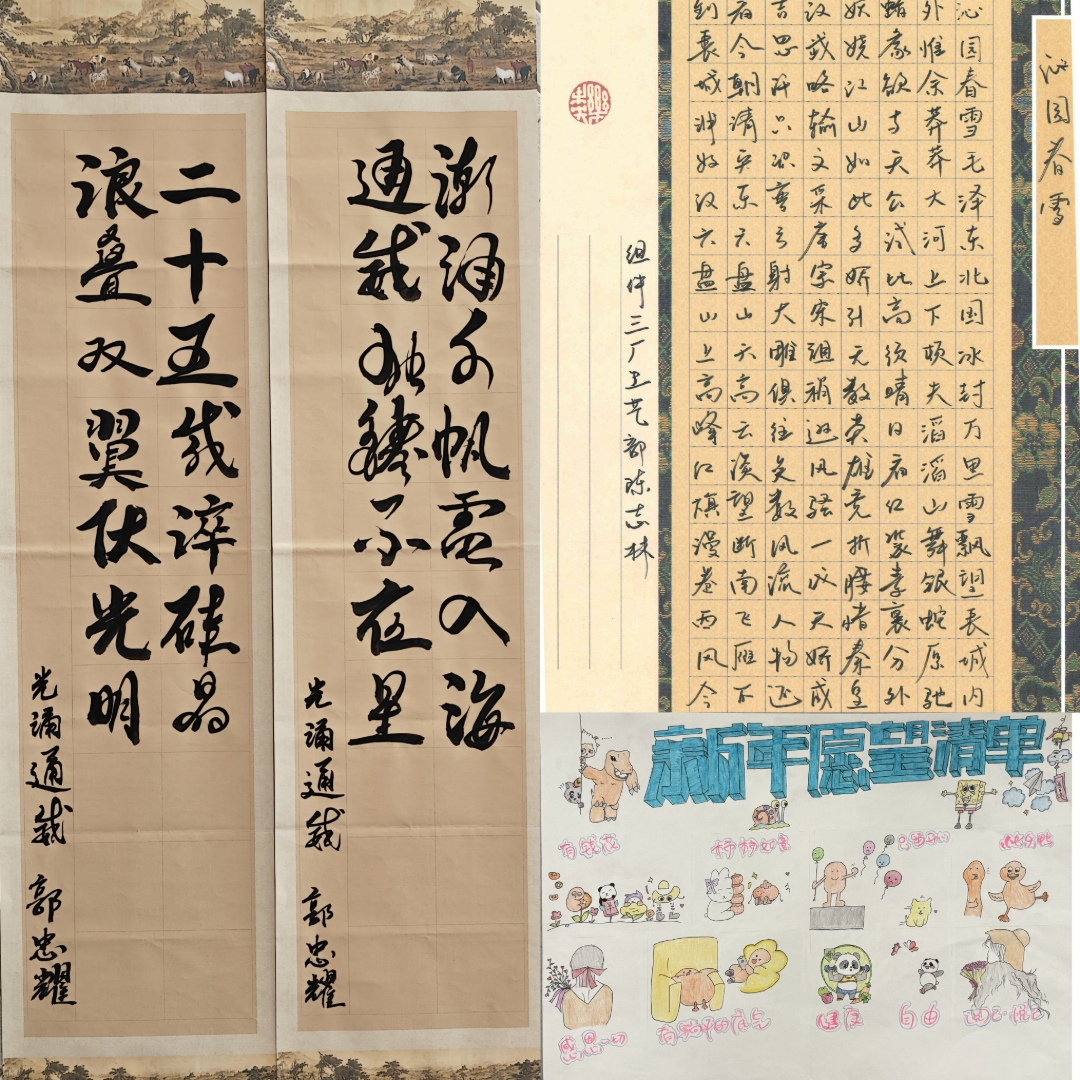 二十五载淬硅晶
浪叠双翼伏光明
光涌通威 郭忠耀
涌千帆 入海
通威独 不夜星
光涌通威 郭忠耀
沁园春雪
沁园春雪毛泽东北国冰封万里雪飘望长城内
外惟余莽莽大河上下顿失滔滔山舞银蛇原驰
蜡象欲与天公试比高须晴日看红装素裹分外
妖娆江山如此多娇引无数英雄竞折腰惜秦皇
汉武略输文采唐宗宋祖稍逊风骚一代天骄成
吉思汗只识弯弓射大雕俱往矣数风流人物还
看今朝清平乐六盘山天高云淡望断南飞雁不
到長城非好汉六盘山上高峰红旗漫卷西风今
组件三厂工艺部陈志林
新年愿望清单
有钱花
柿柿如意
开心
感恩一切
有躺平的底气
健康
自由